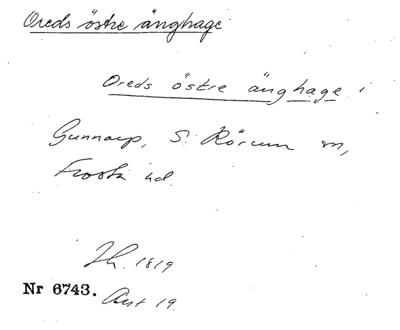 Oreds östre änghage
Oreds östre änghage i
Gunnarp, S. Rörum sn,
Frosta hd.
Jh. 1819
Nr 6743. Akt 19.